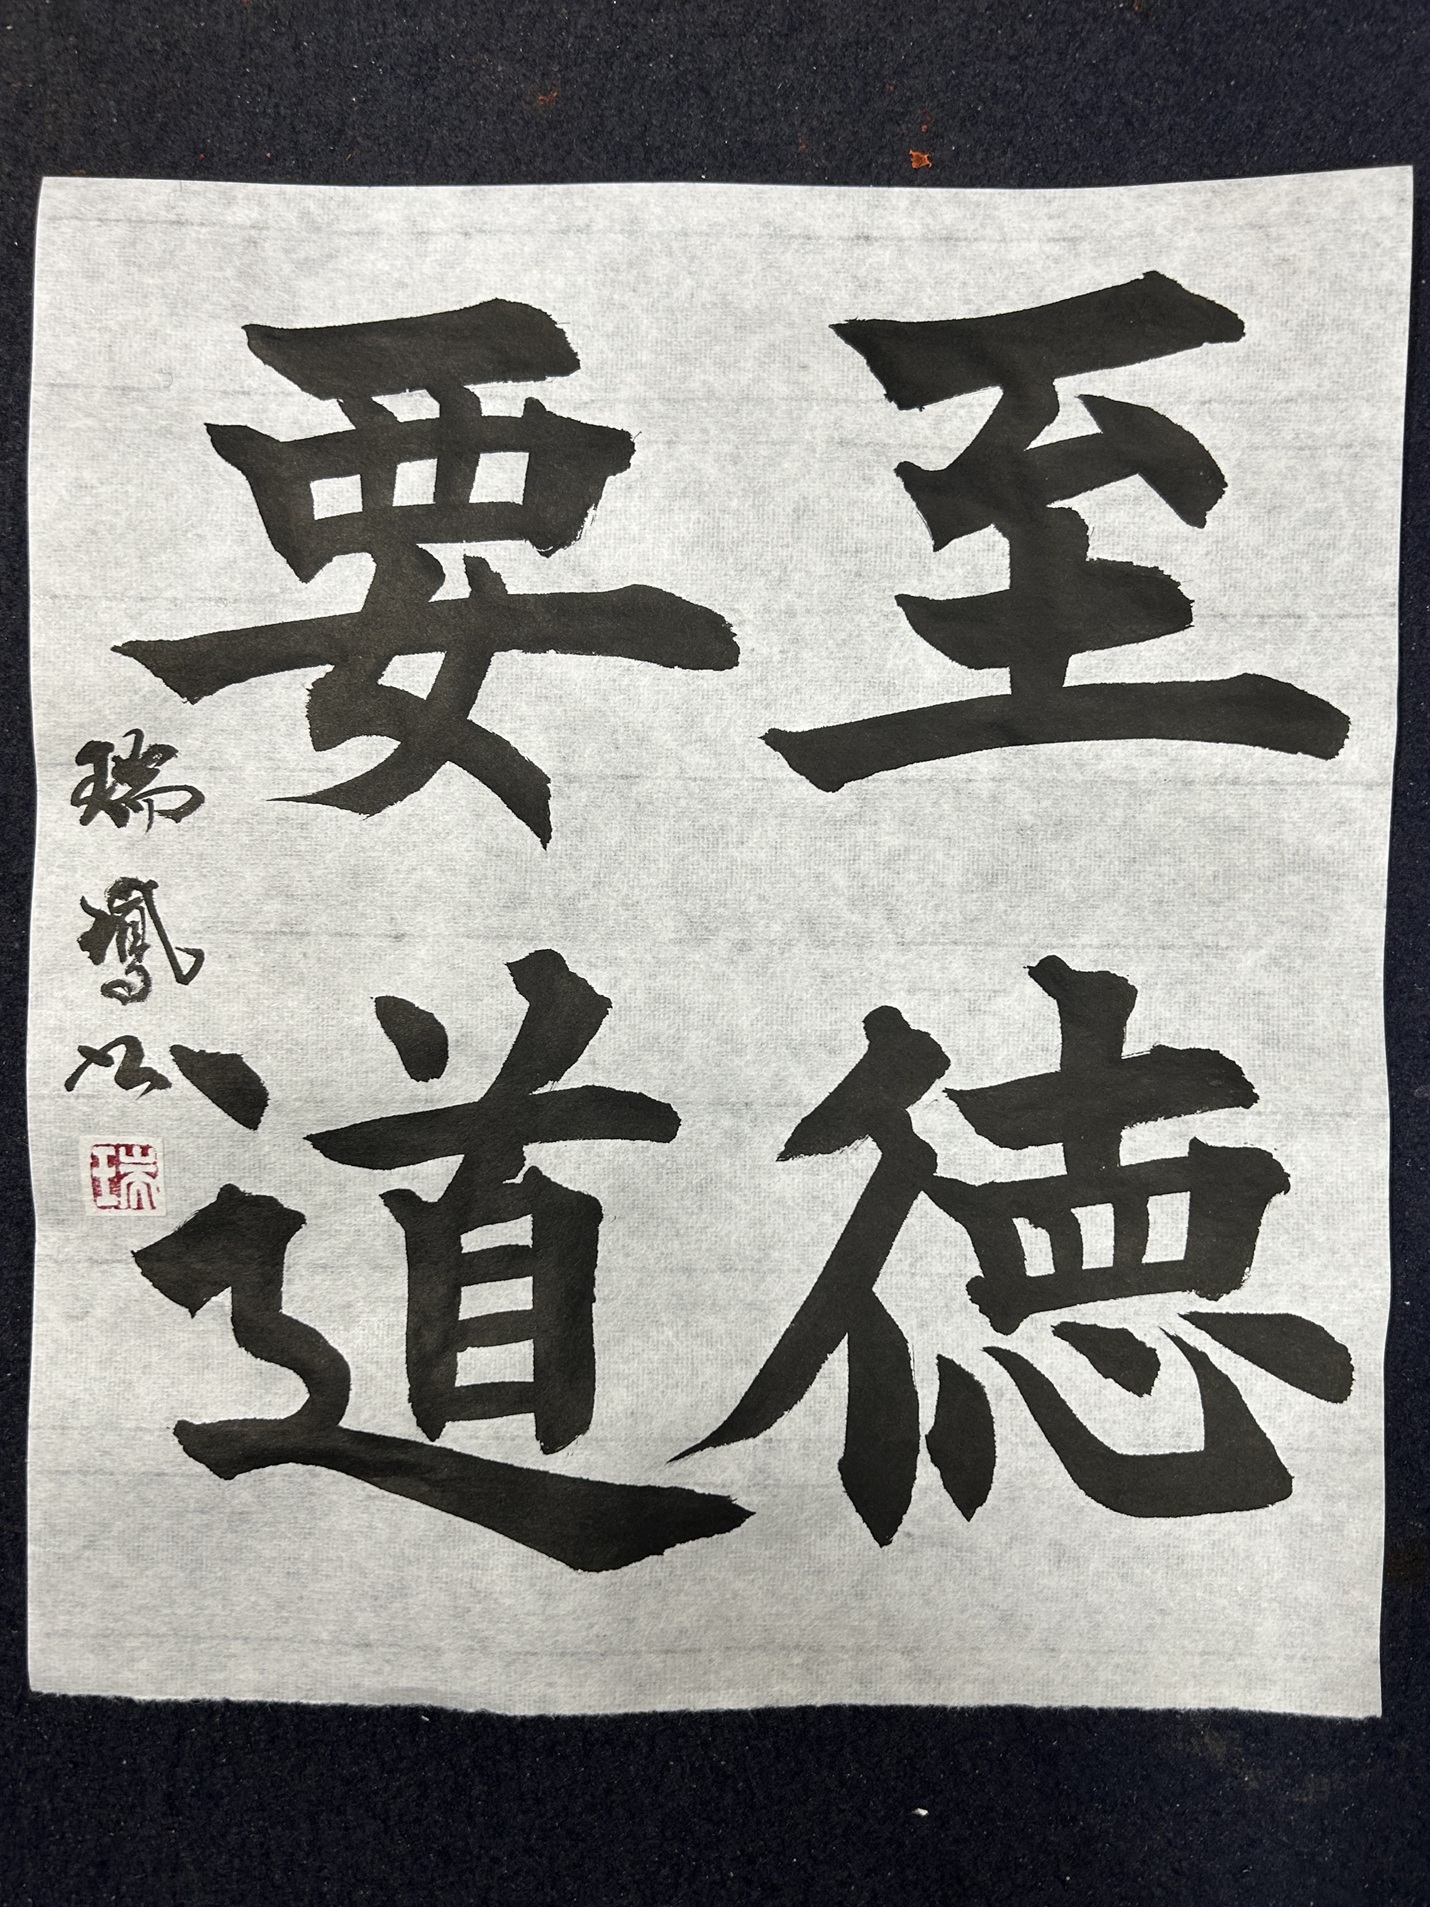 至徳
要道
瑞鳳書
瑞